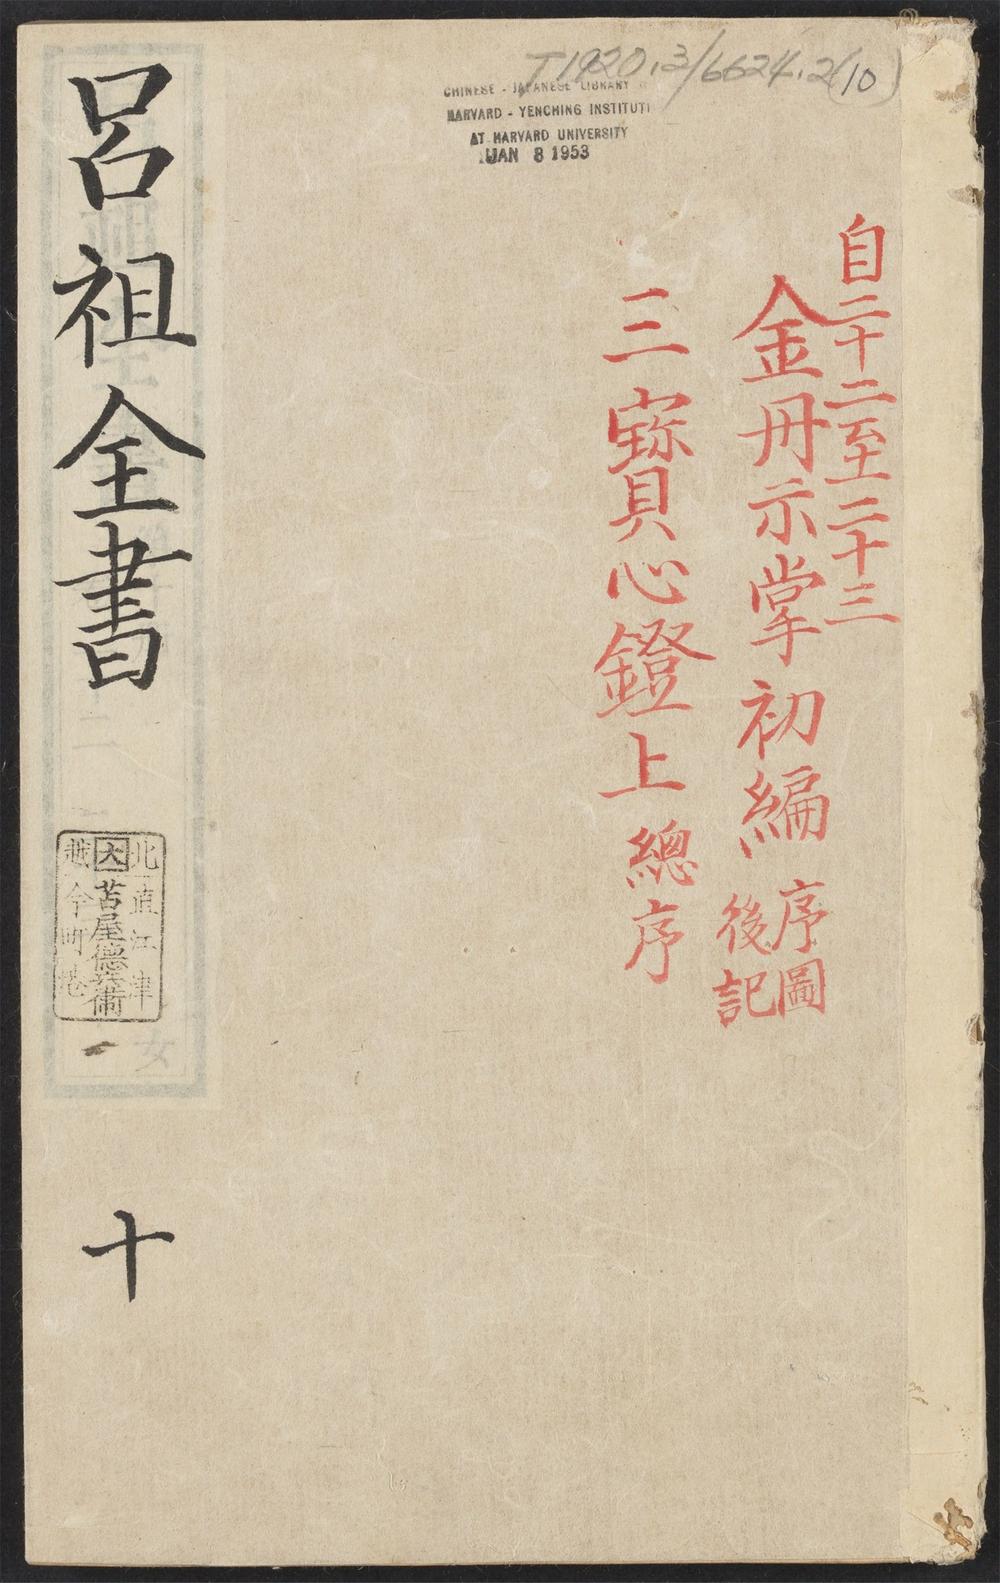 T1920.3/6624.2(10)
CHINESE - JAPANESE LIBRARY
HARVARD - YENCHING INSTITUTE
AT HARVARD UNIVERSITY
JAN 8 1953
自二十二至二十三
金丹示掌初編 序圖
後記
三寳心鐙上 總序
呂祖全書
十
北直江津
大 苫屋德兵衛
越今町港